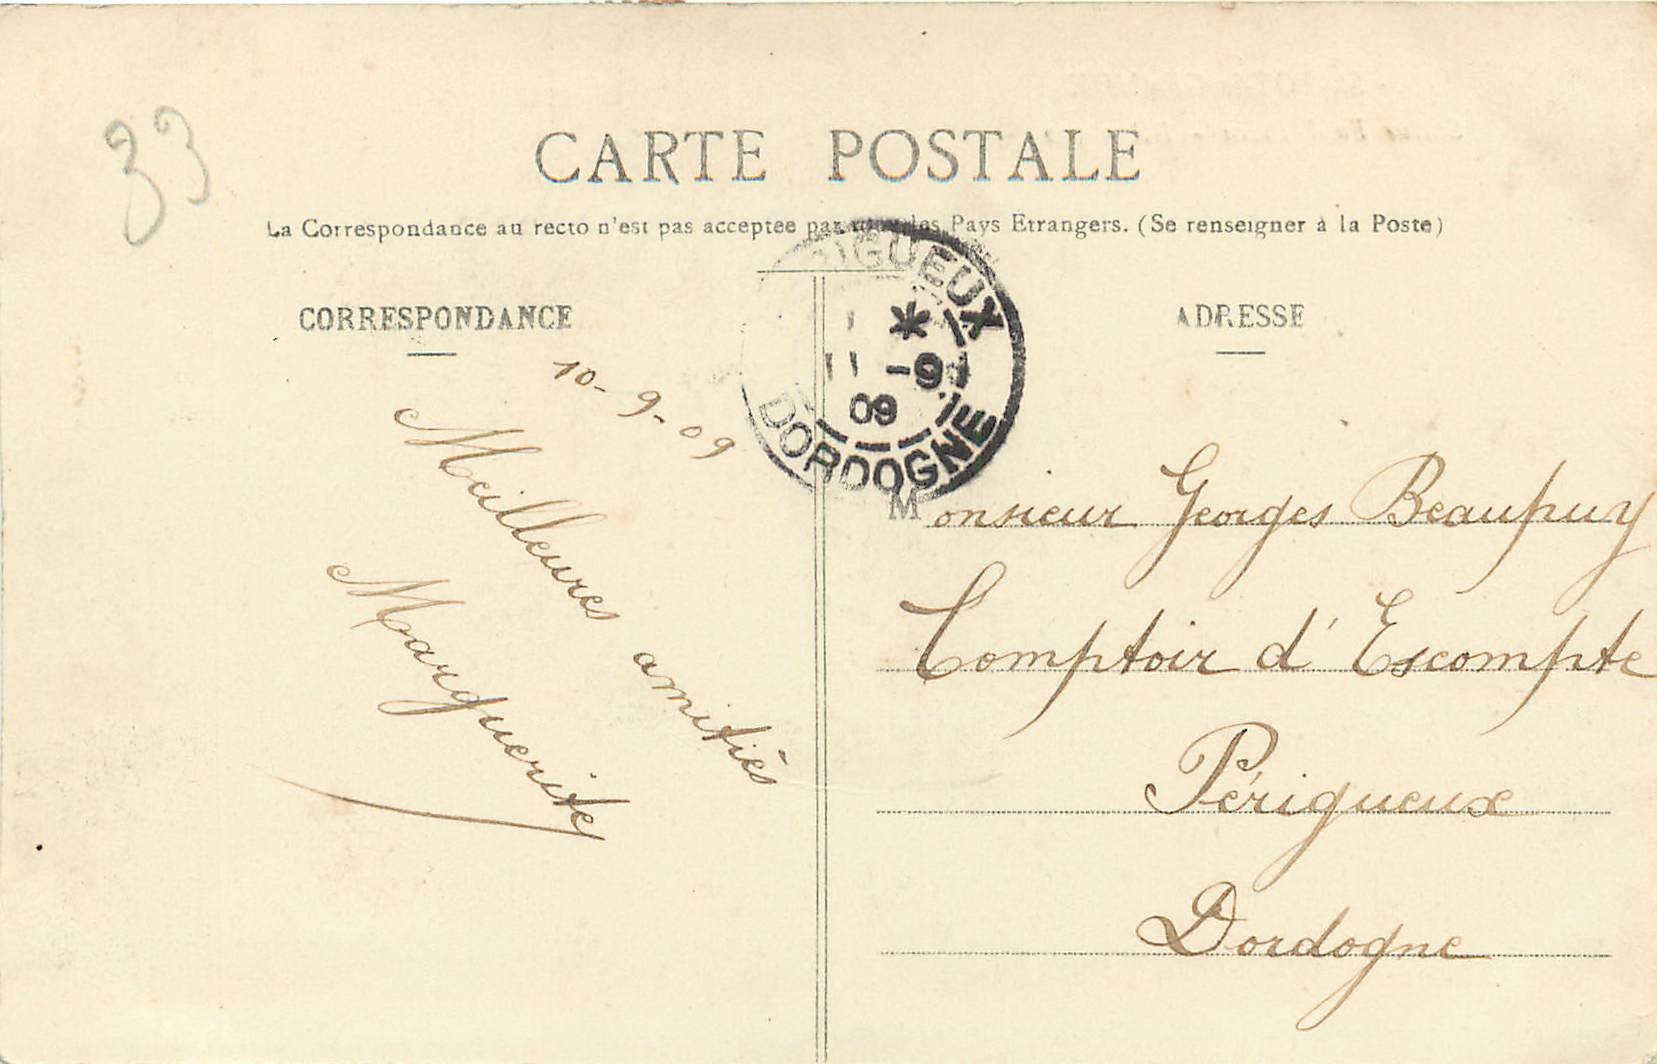 33
CARTE POSTALE
La Correspondance au recto n'est pas acceptee par tous les Pays Etrangers. (Se renseigner à la Poste)
CORRESPONDANCE
10-9-09
Meilleures amitiés
Marguerite
IGUEUX
*
11 -9
09
DORDOGNE
ADRESSE
Monsieur Georges Beaupuy
Comptoir d'Escompte
Périgueux
Dordogne